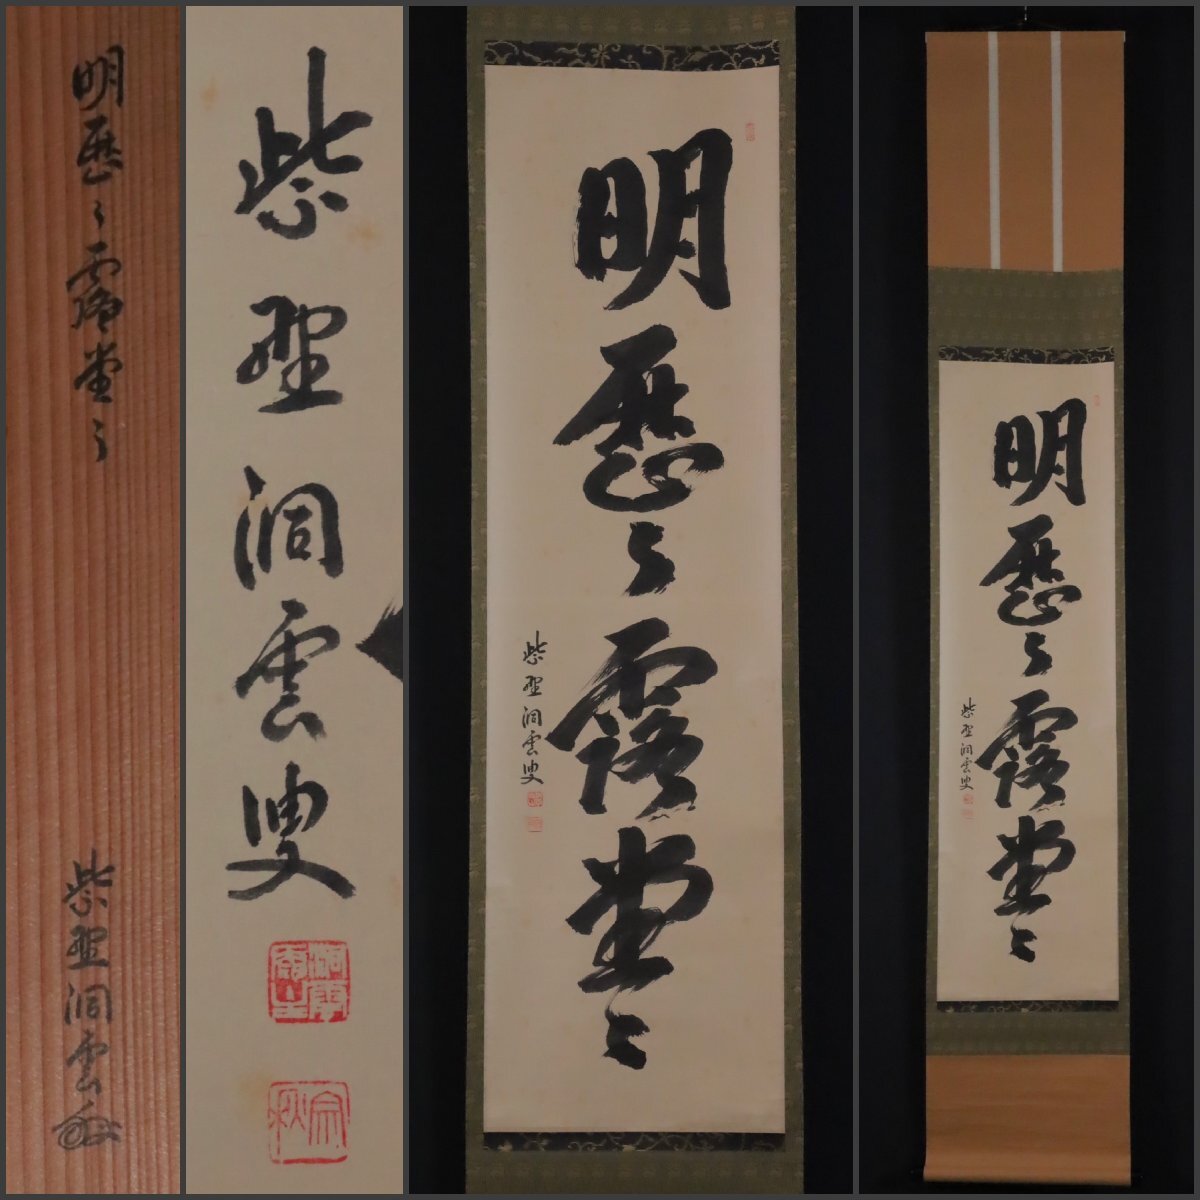 明歴々露堂々
紫野洞雲叟
明歴々露堂々
紫野洞雲
紫野洞雲叟
明歴々露堂々
紫野洞雲叟
宗秋